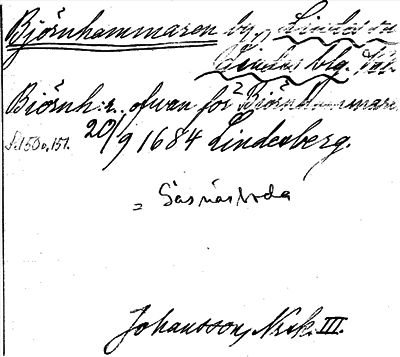 Björnhammaren by, Lindes sn
Lindes blg. Vstm.
Björnh:n. ofvan för Björnhammare
s. 150 o. 151. 20/9 1684 Lindesberg.
= Såsnäsboda
Johansson, Nssk. III.